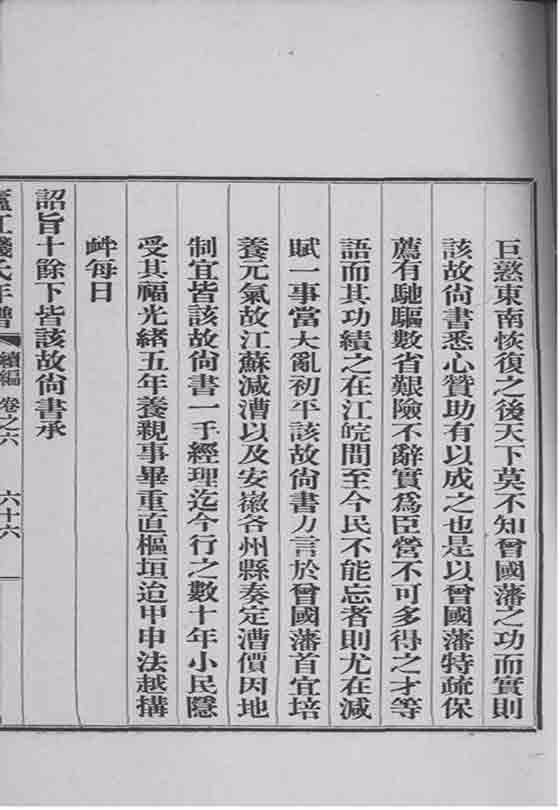 巨憝東南恢復之後天下莫不知曾國藩之功而實則
該故尙書悉心贊助有以成之也是以曾國藩特疏保
薦有馳驅數省艱險不辭實爲臣營不可多得之才等
語而其功績之在江皖間至今民不能忘者則尤在減
賦一事當大亂初平該故尙書力言於曾國藩首宜培
養元氣故江蘇減漕以及安徽各州縣奏定漕價因地
制宜皆該故尙書一手經理迄今行之數十年小民隱
受其福光緒五年養親事畢重直樞垣迨甲申法越搆
衅每日
詔旨十餘下皆該故尙書承
廬江錢氏年譜 續編 卷之六 六十六